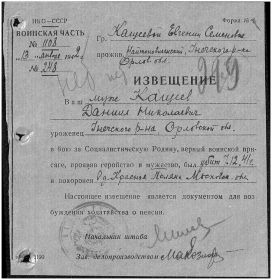 НКО—СССР Форма № 4
ВОИНСКАЯ ЧАСТЬ
№ 1108
№ 248
Гр. Кащеевой Евгении Семеновне
Орловс. обл.
ИЗВЕЩЕНИЕ
Ваш муж Кащеев
Даниил Николаевич
уроженец р-на Орловской обл.
в бою за Социалистическую Родину, верный воинской при-
сяге, проявив геройство и мужество, был убит 7.12.41г.
и похоронен Красная Поляна Московс. обл.
Настоящее извещение является документом для воз-
буждения ходатайства о пенсии.
Начальник штаба
Зав. делопроизводством